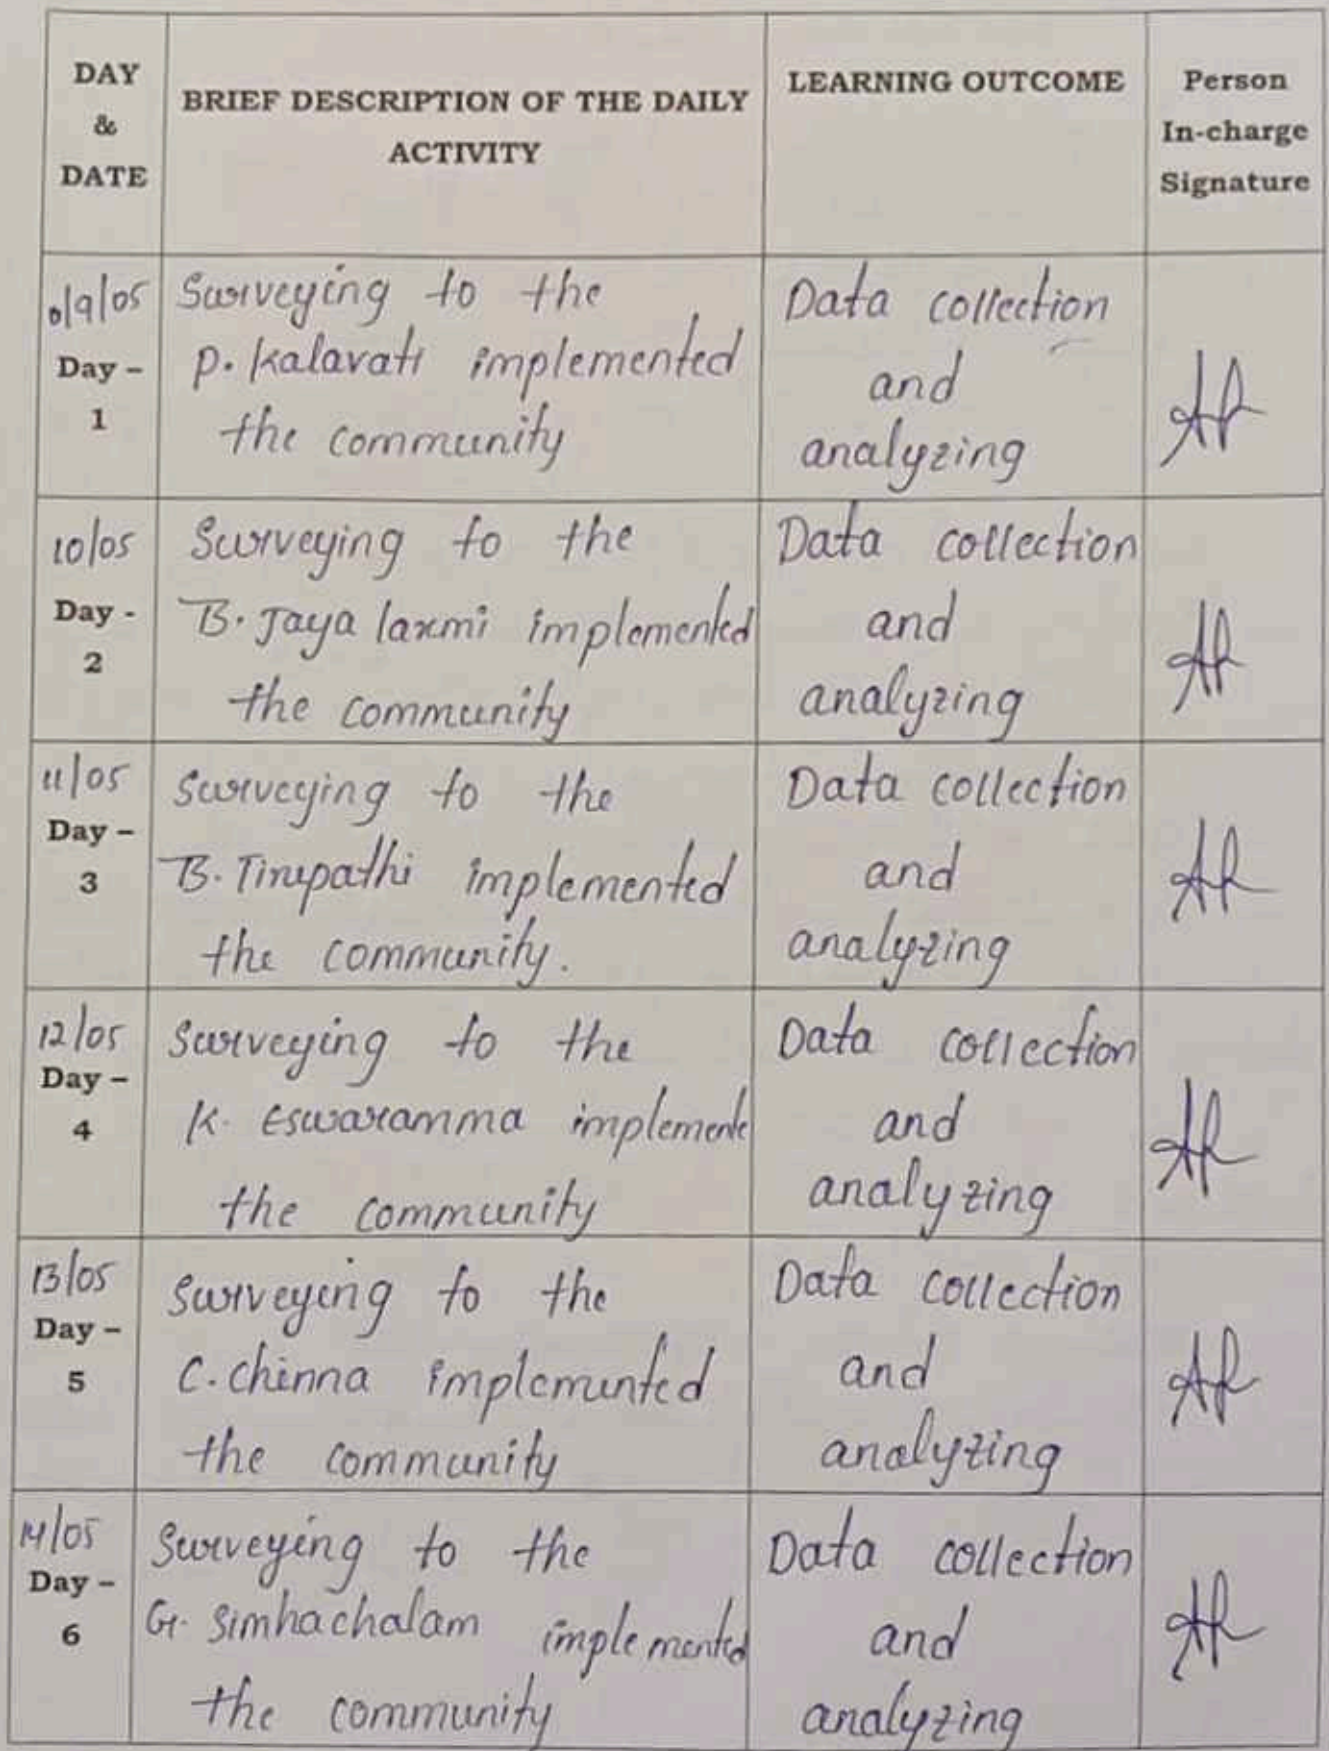 DAY
&
DATE
BRIEF DESCRIPTION OF THE DAILY
ACTIVITY
LEARNING OUTCOME
Person
In-charge
Signature
Day –
1
Surveying to the
P. Kalavati implemented
the community
Data collection
and
analyzing
10/05
Day -
2
Surveying to the
B. Jaya laxmi implemented
the community
Data collection
and
analyzing
11/05
Day –
3
Surveying to the
B. Tirupathi implemented
the community.
Data collection
and
analyzing
12/05
Day –
4
Surveying to the
K. Eswaramma implemente
the community
Data collection
and
analyzing
13/05
Day –
5
Surveying to the
C. chinna implemented
the community
Data collection
and
analyzing
14/05
Day –
6
Surveying to the
G. Simhachalam implemented
the community
Data collection
and
analyzing